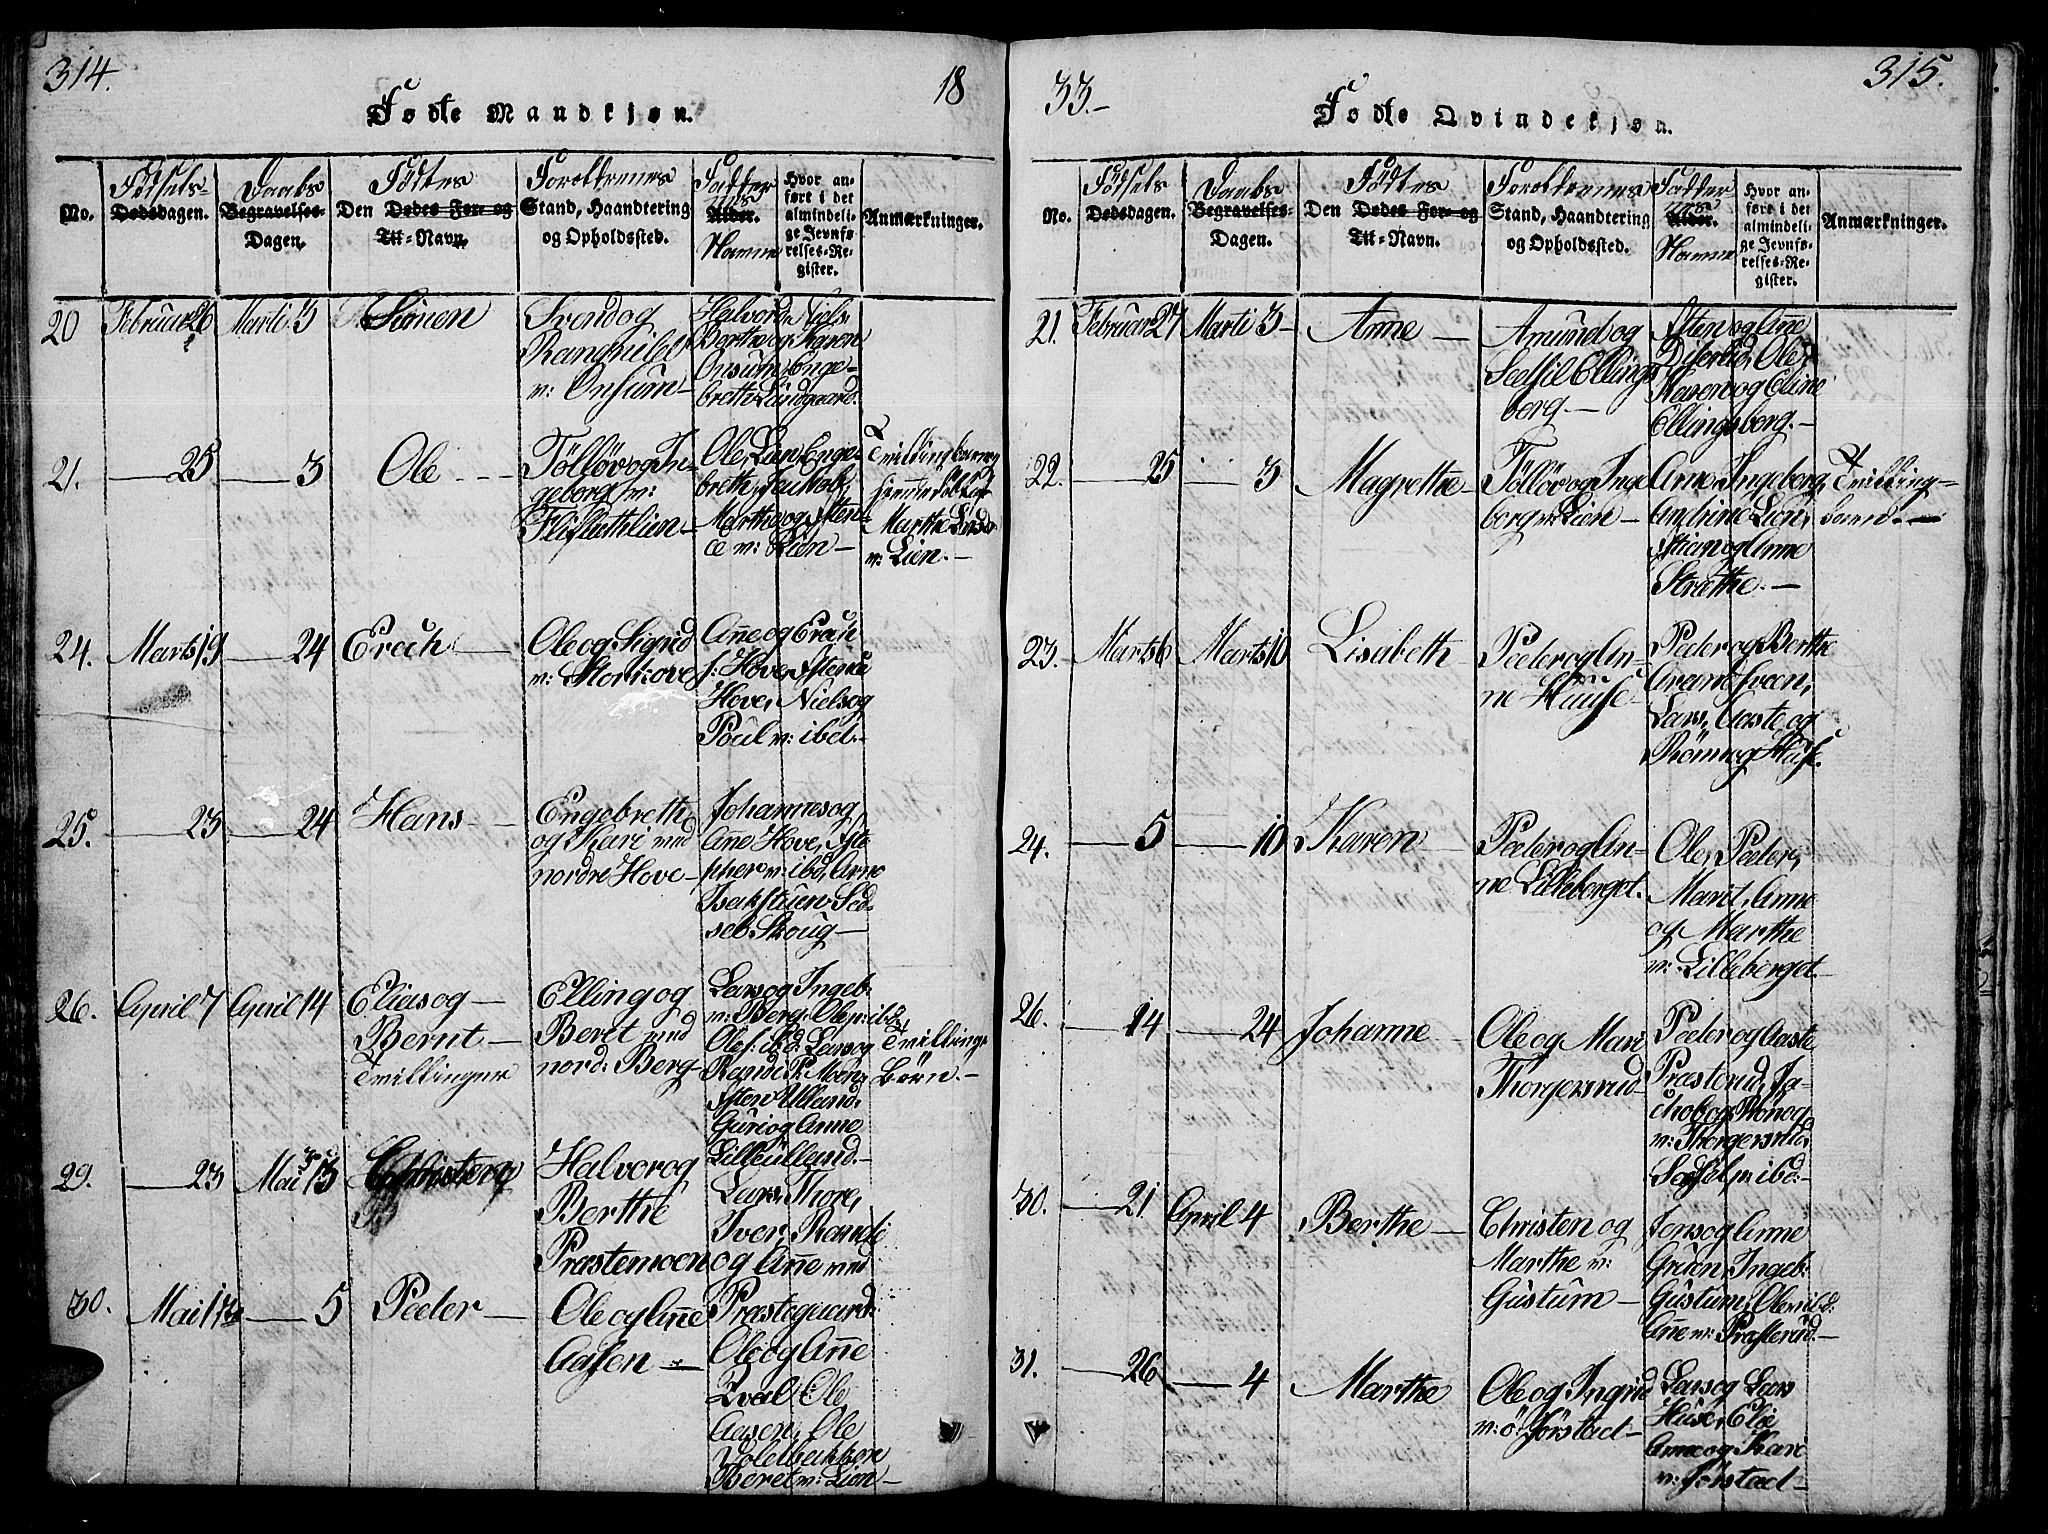 314.
18
Fødte Mandkjøn.
No.
Fødsels-
Dødsdagen.
Daabs
Begravelses-
Dagen.
Fødtes
Den Dødes For- og
Til-Navn.
Foreldrenes
Stand, Haandtering
og Opholdssted.
Fadder
Alder.
Navne
Hvor an-
ført i det
almindeli-
ge Jevnfø-
relses-Re-
gister.
Anmærkninger.
20
Februar 26
Marti 3
Simen
Svend og
Rangnild
v: Onsum-
Halvord, Niels,
Berthe og Karen
Onsum, Enge-
breth Lundgaard.
21.
25
3
Ole
Tölløv og In-
geborg v:
Flifletlien-
Ole, Lars, Enge-
breth, Jackob,
Marthe og
v: Lien-
Tvillingbarn
hjemmedøbt af
Marthe
v: Lien.-
24.
Marts 19
24
Erech
Ole og Sigrid
v: Storhove
Anne og Erech
s: Hove,
Hove, Niels og
Poul v: ibd.-
25.
23
24
Hans
Engebreth
og Kari med
nordre Hove-
Johannes og
Anne Hove, Ste-
phen v: ibd, Arne
Isakstuen Sed-
seb Skoug-
26.
April 7
April 14
Elias og
Bernt
Tvillinger
Elling og
Beret med
nord: Berg-
Lars og Ingeb:
v: Berg, Ole v: ibd,
Ole s: ibd: Lars og
Rande P: Moen,
Sten Ulland,
Guri og Anne
Lilleulland.-
Tvillinge
Börn.-
29.
23
Mai
Halvor og
Berthe
Præstemoen
Lars, Thore,
Iver, Randi
og Anne med
Præstegaard:
30.
Mai
5
Peder
Ole og Anne
Aasen
Ole og Anne
Qval Ole
Aasen, Ole
Voletbakken
Beret v: Lien-
33.-
315.
Fødte Qvindekjøn.
No.
Fødsels
Dødsdagen.
Daabs
Begravelses-
Dagen.
Fødtes
Den Dødes For- og
Til-Navn.
Foreldrenes
Stand, Haandtering
og Opholdssted.
Fadder
Alder.
Navne
Hvor an-
ført i det
almindeli-
ge Jevnfø-
relses-Re-
gister.
Anmærkninger.
21.
Februar 27
Marti 3
Anne
Amund og
Sedsil Ellings
berg.-
Sten og Anne
Ole,
Karen og Eline
Ellingsberg.-
22.
25
3
Magrethe
Tölløv og Inge
berg v: Lien-
Arne, Ingeberg,
Andrine Lien,
Stian og Anne
Stræthe.-
Tvilling-
barn.-
23.
Marts 6
Marts 10
Lisabeth
Peder og An-
ne Huuse-
Peder og Berthe
Lars, Aaste og
Rönnog Huse.
24.
5
10
Karen
Peder og An-
ne Lilleberget.
Ole, Peder,
Marit, Anne
og Marthe
v: Lilleberget-
26.
14
24
Johanne
Ole og Mari
Thorgersrud-
Peder og Aaste
Præsterud, Ja-
chob og Ronog
v: Thorgersrud,
v: ibd:-
30.
21
April 4
Berthe
Christen og
Marthe v:
Gustum-
Jens og Anne
Gruen, Ingeb:
Gustum, Ole v: ibd:
Anne v: Præsterud.-
31.
26
4
Marthe
Ole og Ingrid
v: ö: Jörstad-
Lars og Lars
Huse, Elie
Anne og Kari
v: Jörstad-